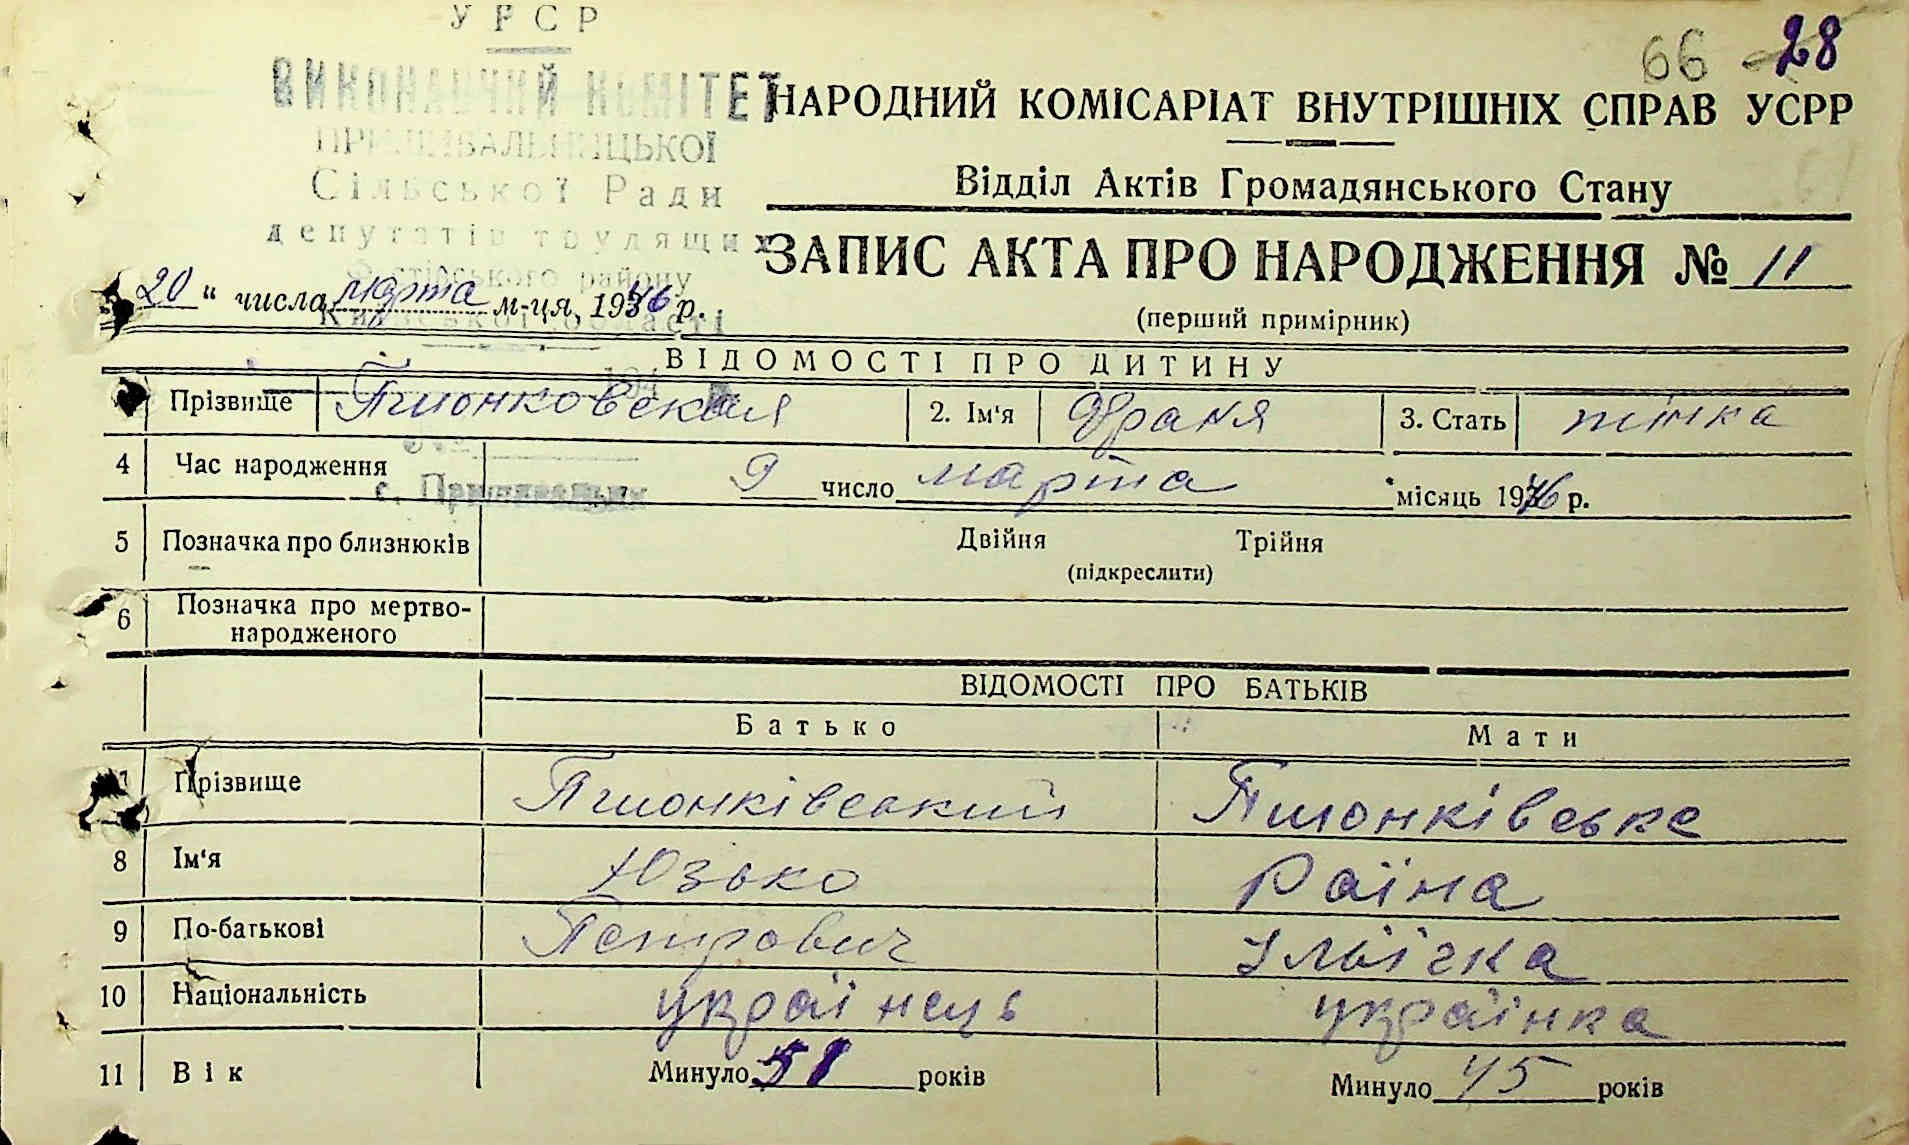 УРСР
66 28
ВИКОНАВЧИЙ КОМІТЕТ
НАРОДНИЙ КОМІСАРІАТ ВНУТРІШНІХ СПРАВ УСРР
Сільської Ради
Відділ Актів Громадянського Стану
депутатів трудящих
ЗАПИС АКТА ПРО НАРОДЖЕННЯ № 11
району
20 " числа марта м-ця, 1946 р.
Київської області
(перший примірник)
ВІДОМОСТІ ПРО ДИТИНУ
Прізвище Пшонковская 2. Ім'я Франя 3. Стать жінка
4 Час народження 9 число марта місяць 1946 р.
5 Позначка про близнюків Двійня Трійня
(підкреслити)
6 Позначка про мертво-
народженого
ВІДОМОСТІ ПРО БАТЬКІВ
Батько Мати
7 Прізвище Пшонківський Пшонківське
8 Ім'я Юзько Раїна
9 По-батькові Петрович Ільїчка
10 Національність українець українка
11 Вік Минуло 51 років Минуло 45 років